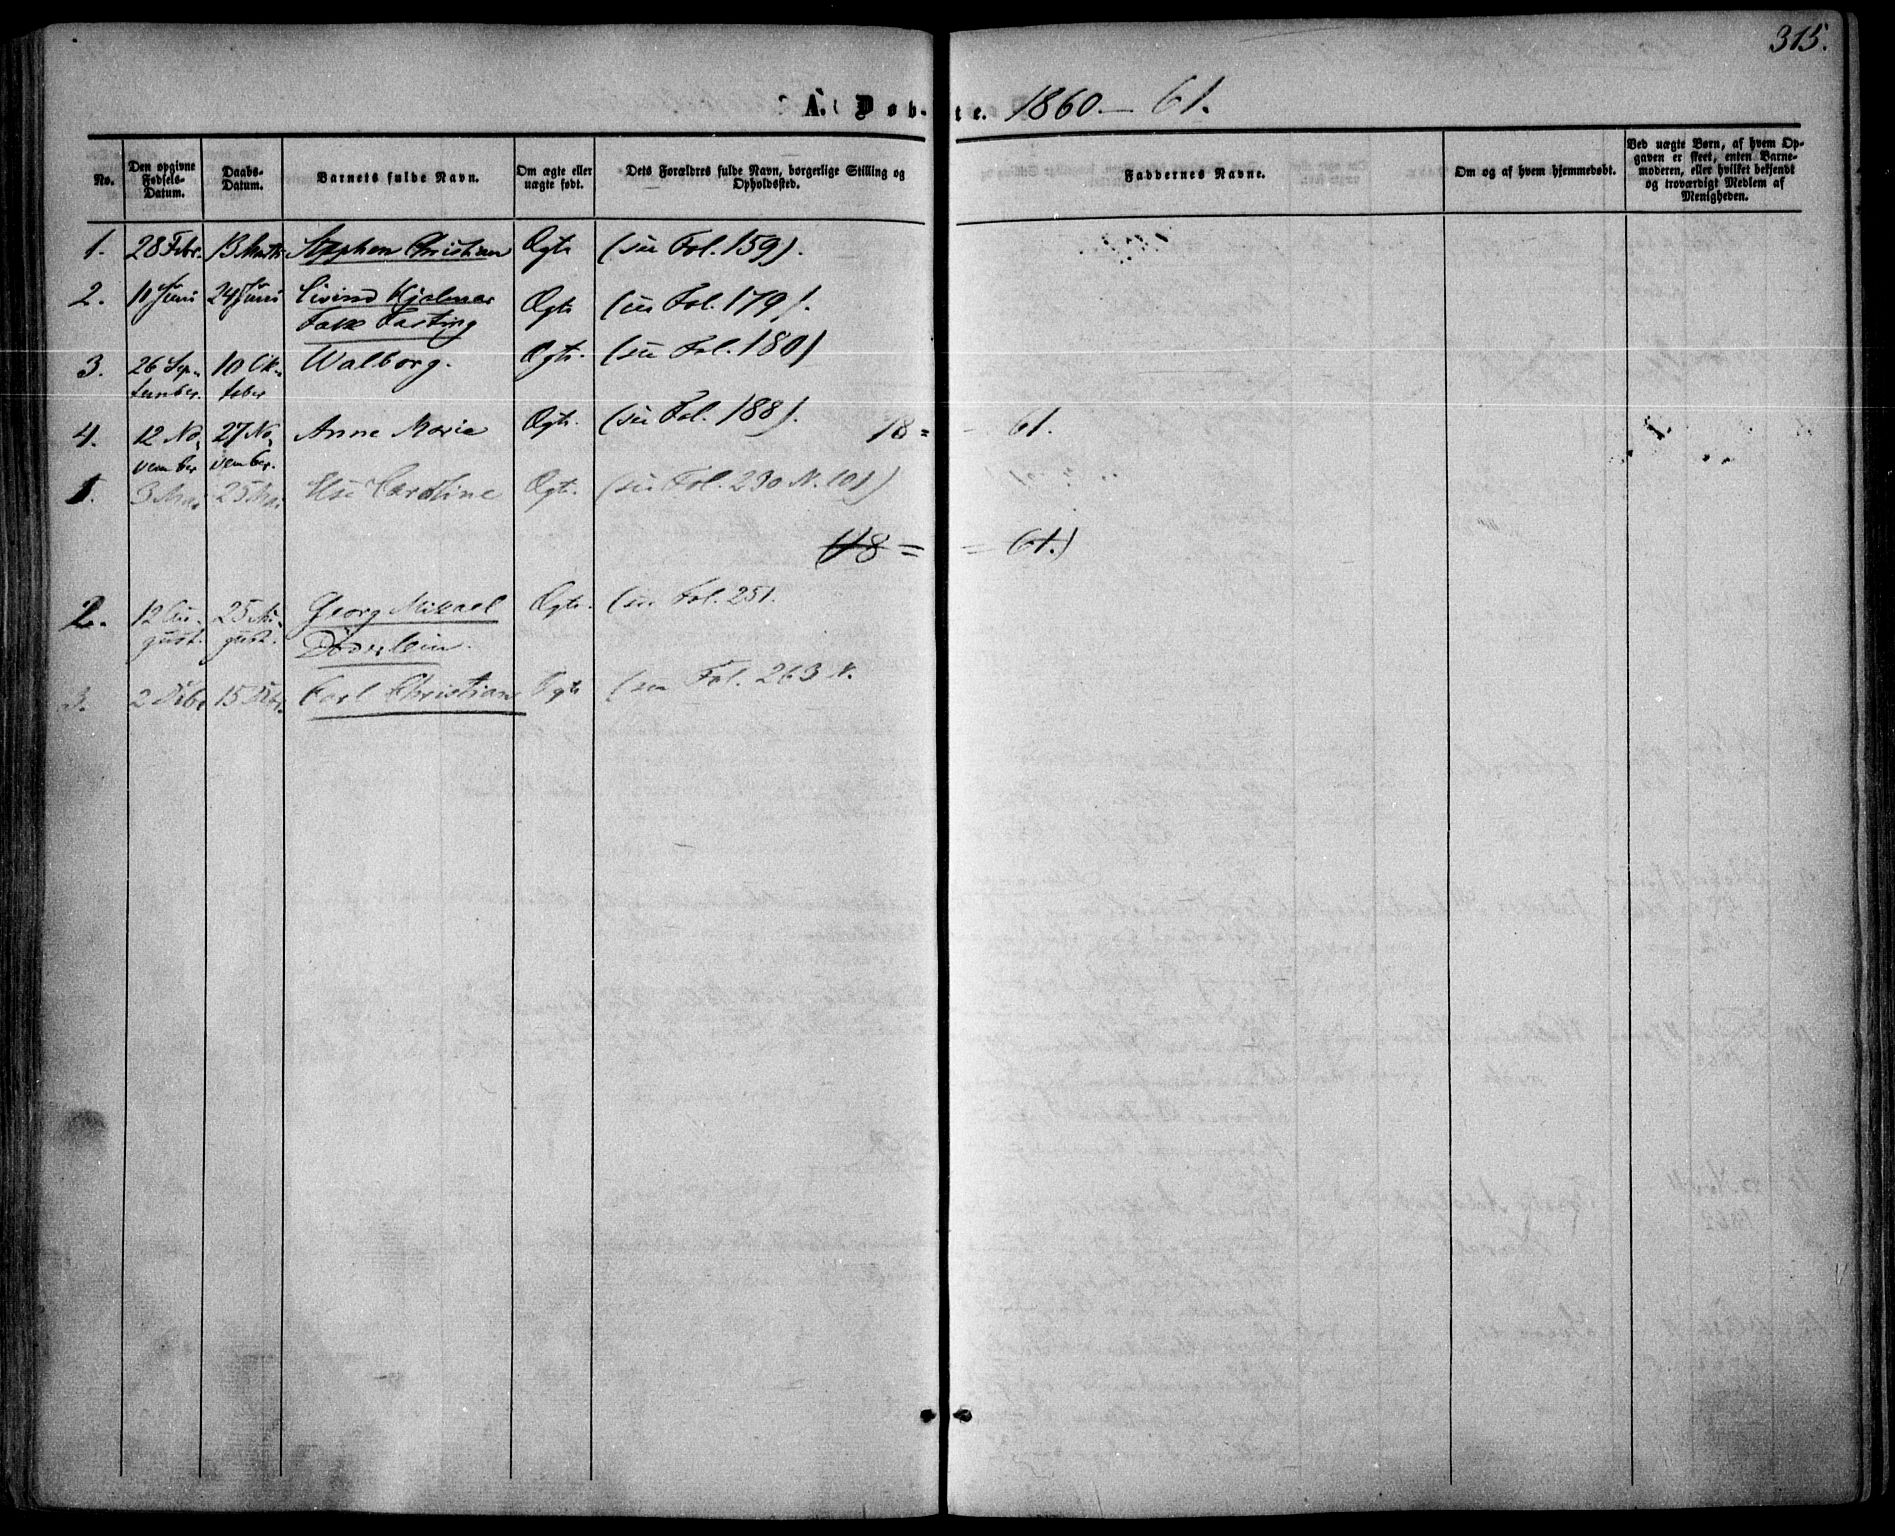 315.
A. Døb- te. 1860 - 61.
No.
Den opgivne Fødsels-Datum.
Daabs-Datum.
Barnets fulde Navn.
Om ægte eller uægte født.
Dets Forældres fulde Navn, borgerlige Stilling og Opholdssted.
Faddernes Navne.
Om og af hvem hjemmedøbt.
Ved uægte Børn, af hvem Opgaven er skeet, enten Barnemoderen, eller hvilket bekjendt og troværdigt Medlem af Menigheden.
1. 28 Febr. 13 Marts Stephen Christian Ægte (see Fol. 159).
2. 10 Juni 24 Juni Eivind Hjalmar Ægte (see Fol. 179).
Falk Fasting
3. 26 Sep- 10 Ok- Walborg. Ægte. (see Fol. 180)
tember. tober
4. 12 No- 27 No- Anne Marie Ægte. (see Fol. 188).
vember vember.
18 = - 61.
1. 3 Mai 25 Mai Caroline Ægte. (see Fol. 230 N. 101)
(18 = = 61.)
2. 12 Au- 25 Au- Georg Mikael Ægte. (see Fol. 251.
gust. gust. Döderlein.
3. 2 15 Carl Christian Ægte (see Fol. 263 N.